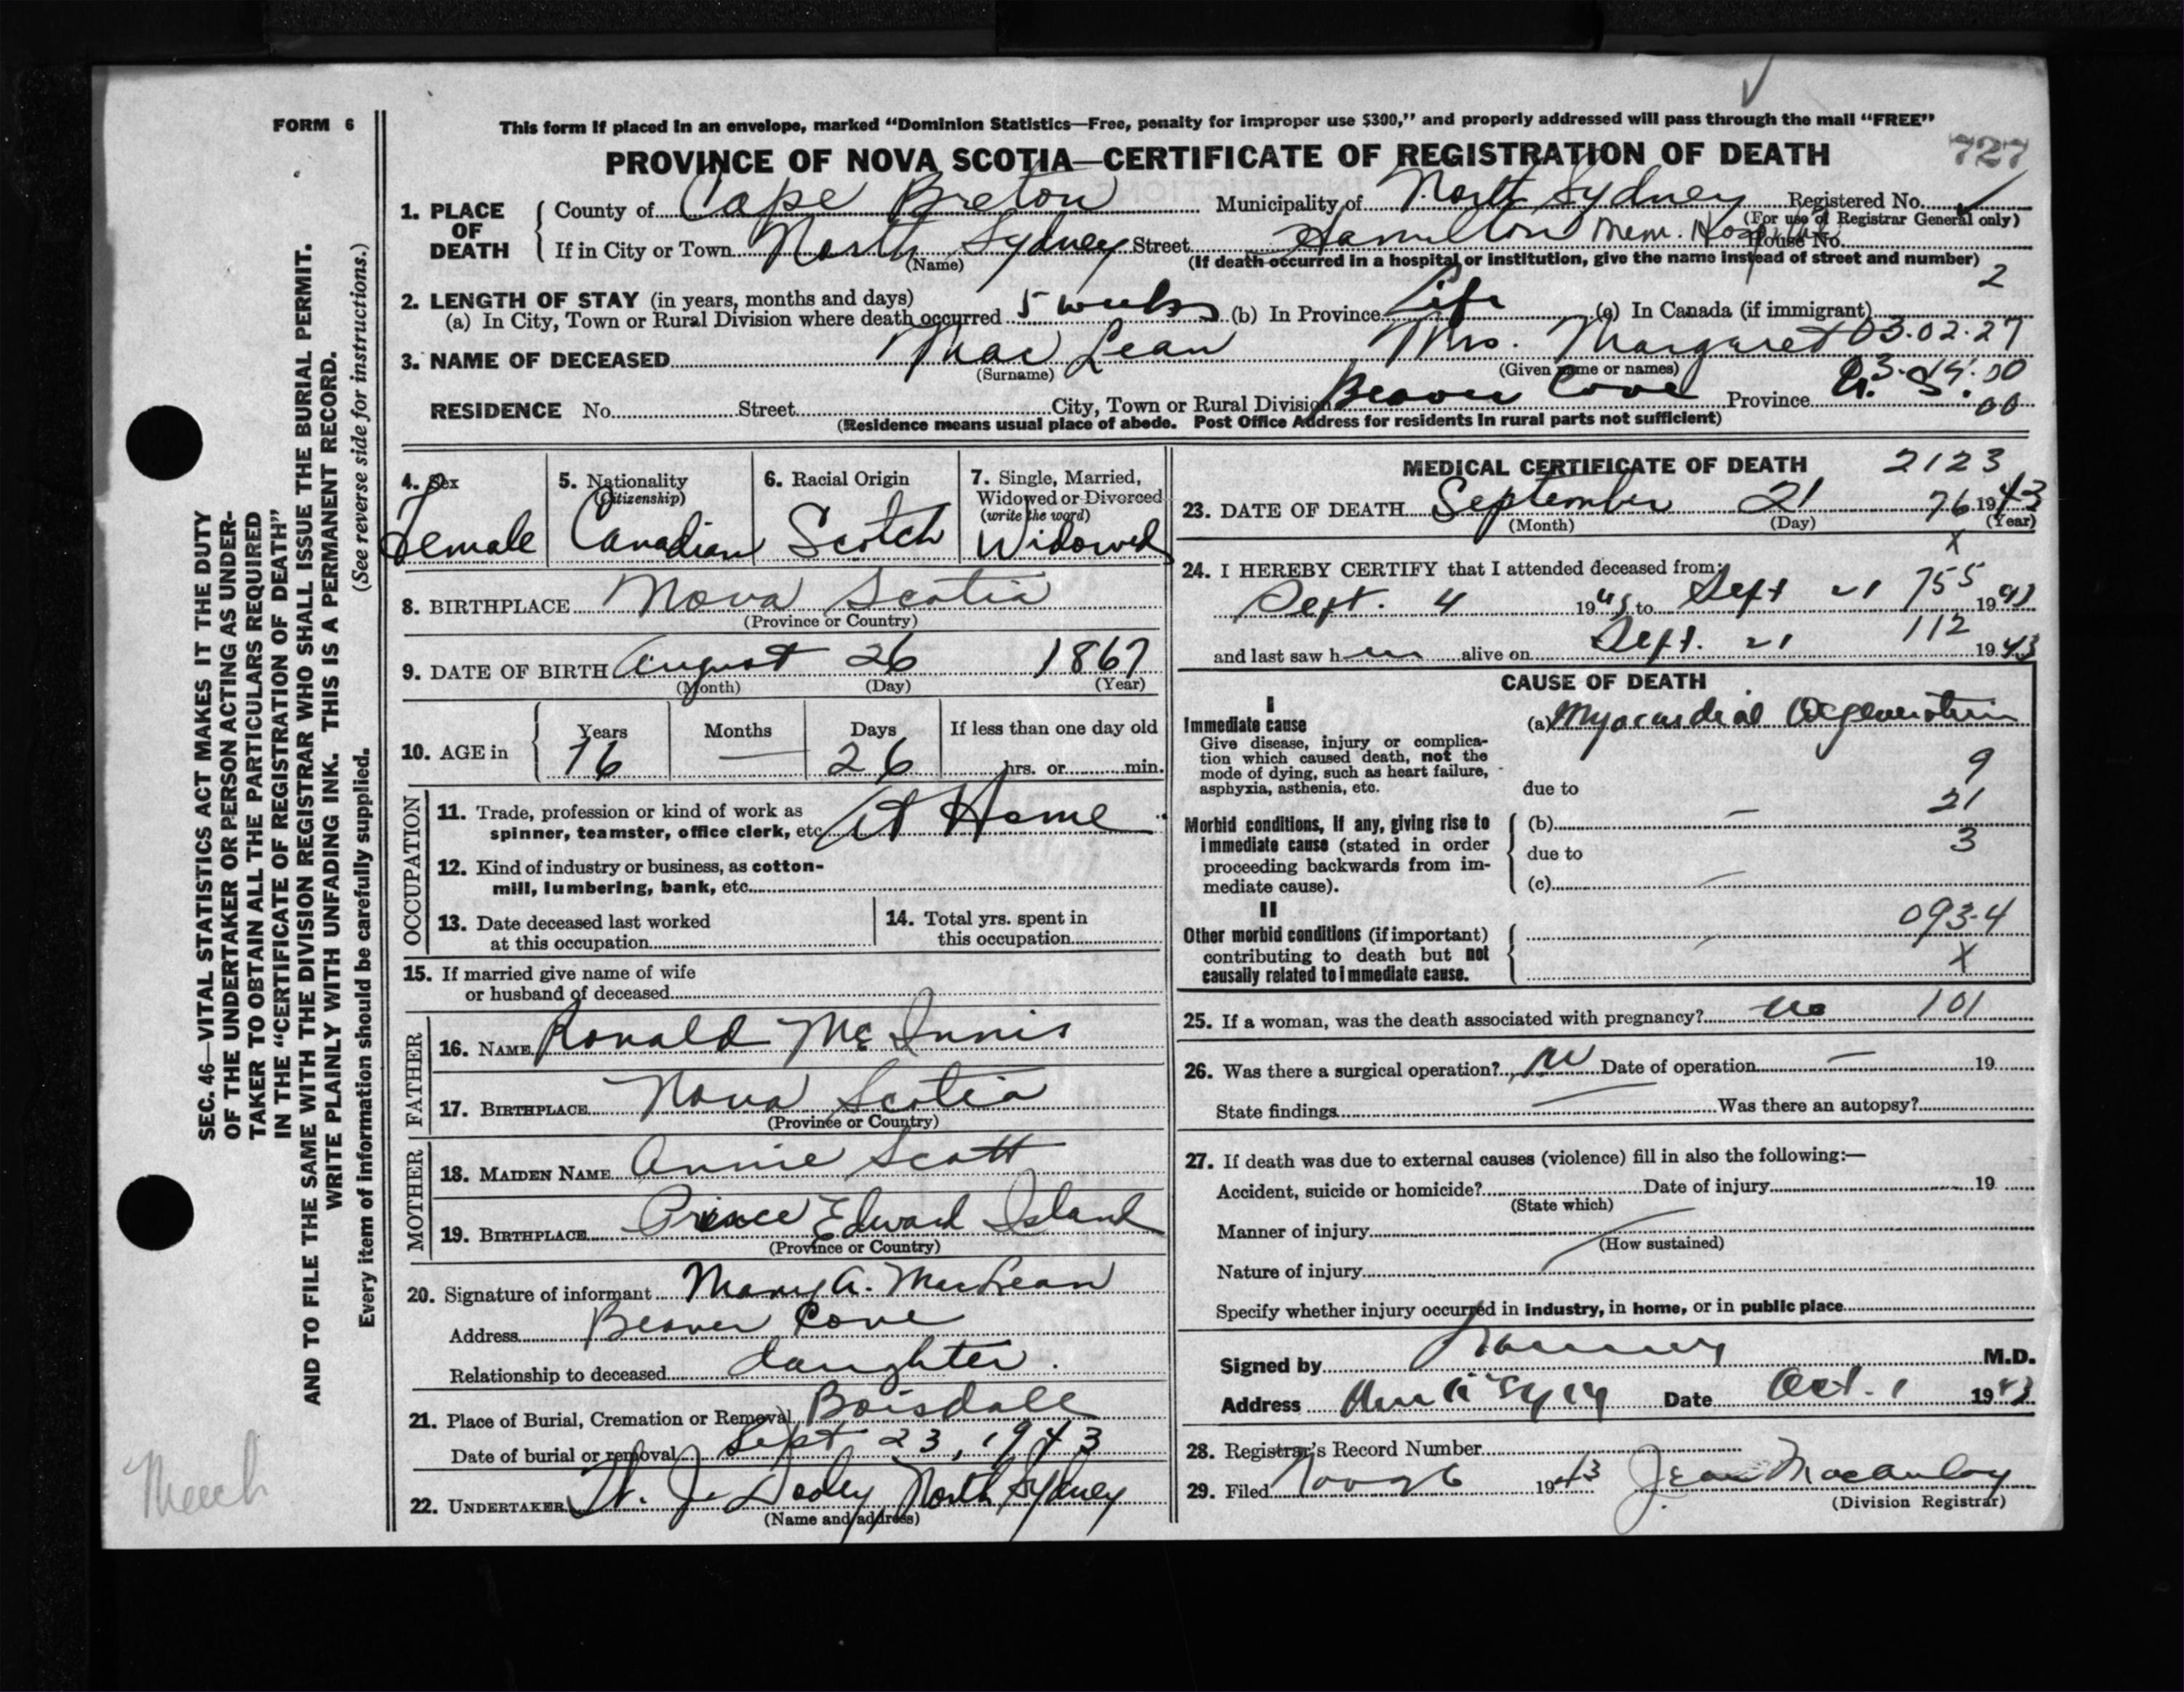 FORM 6
This form if placed in an envelope, marked "Dominion Statistics—Free, penalty for improper use $300," and properly addressed will pass through the mail "FREE"
PROVINCE OF NOVA SCOTIA—CERTIFICATE OF REGISTRATION OF DEATH
727
1. PLACE OF DEATH
County of Cape Breton Municipality of North Sydney Registered No.
(For use of Registrar General only)
If in City or Town North Sydney Street Hamilton Mem. Hospital House No.
(Name) (If death occurred in a hospital or institution, give the name instead of street and number)
2
2. LENGTH OF STAY (in years, months and days)
(a) In City, Town or Rural Division where death occurred 5 weeks (b) In Province Life (c) In Canada (if immigrant)
3. NAME OF DECEASED MacLean Mrs. Margaret 03.02.27
(Surname) (Given name or names)
RESIDENCE No. Street City, Town or Rural Division Beaver Cove Province N. S. 00
(Residence means usual place of abode. Post Office Address for residents in rural parts not sufficient)
4. Sex
Female
5. Nationality
(Citizenship)
Canadian
6. Racial Origin
Scotch
7. Single, Married,
Widowed or Divorced
(write the word)
Widowed
8. BIRTHPLACE Nova Scotia
(Province or Country)
9. DATE OF BIRTH August 26 1867
(Month) (Day) (Year)
10. AGE in Years Months Days If less than one day old
76 — 26 hrs. or min.
OCCUPATION
11. Trade, profession or kind of work as
spinner, teamster, office clerk, etc. At Home
12. Kind of industry or business, as cotton-
mill, lumbering, bank, etc.
13. Date deceased last worked
at this occupation
14. Total yrs. spent in
this occupation
15. If married give name of wife
or husband of deceased
FATHER
16. NAME Ronald McInnis
17. BIRTHPLACE Nova Scotia
(Province or Country)
MOTHER
18. MAIDEN NAME Annie Scott
19. BIRTHPLACE Prince Edward Island
(Province or Country)
20. Signature of informant Mary A. MacLean
Address Beaver Cove
Relationship to deceased daughter.
21. Place of Burial, Cremation or Removal Boisdale
Date of burial or removal Sept 23, 1943
22. UNDERTAKER W. J. Dooley North Sydney
(Name and address)
MEDICAL CERTIFICATE OF DEATH 2123
23. DATE OF DEATH September 21 76 1943
(Month) (Day) (Year)
X
24. I HEREBY CERTIFY that I attended deceased from:
Sept. 4 1943 to Sept 21 755 1943
112
and last saw h alive on Sept. 21 1943
CAUSE OF DEATH
I
Immediate cause
Give disease, injury or complica-
tion which caused death, not the
mode of dying, such as heart failure,
asphyxia, asthenia, etc.
(a) Myocardial Degeneration
9
due to
21
Morbid conditions, if any, giving rise to
immediate cause (stated in order
proceeding backwards from im-
mediate cause).
(b) —
3
due to
(c)
II
Other morbid conditions (if important)
contributing to death but not
causally related to immediate cause.
093-4
X
25. If a woman, was the death associated with pregnancy? no 101
26. Was there a surgical operation? no Date of operation — 19
State findings Was there an autopsy?
27. If death was due to external causes (violence) fill in also the following:—
Accident, suicide or homicide? Date of injury 19
(State which)
Manner of injury
(How sustained)
Nature of injury
Specify whether injury occurred in industry, in home, or in public place
Signed by M.D.
Address Date Oct. 1 1943
28. Registrar's Record Number
29. Filed Nov 26 1943 Jean Macaulay
(Division Registrar)
SEC. 46—VITAL STATISTICS ACT MAKES IT THE DUTY
OF THE UNDERTAKER OR PERSON ACTING AS UNDER-
TAKER TO OBTAIN ALL THE PARTICULARS REQUIRED
IN THE "CERTIFICATE OF REGISTRATION OF DEATH"
AND TO FILE THE SAME WITH THE DIVISION REGISTRAR WHO SHALL ISSUE THE BURIAL PERMIT.
WRITE PLAINLY WITH UNFADING INK. THIS IS A PERMANENT RECORD.
Every item of information should be carefully supplied. (See reverse side for instructions.)